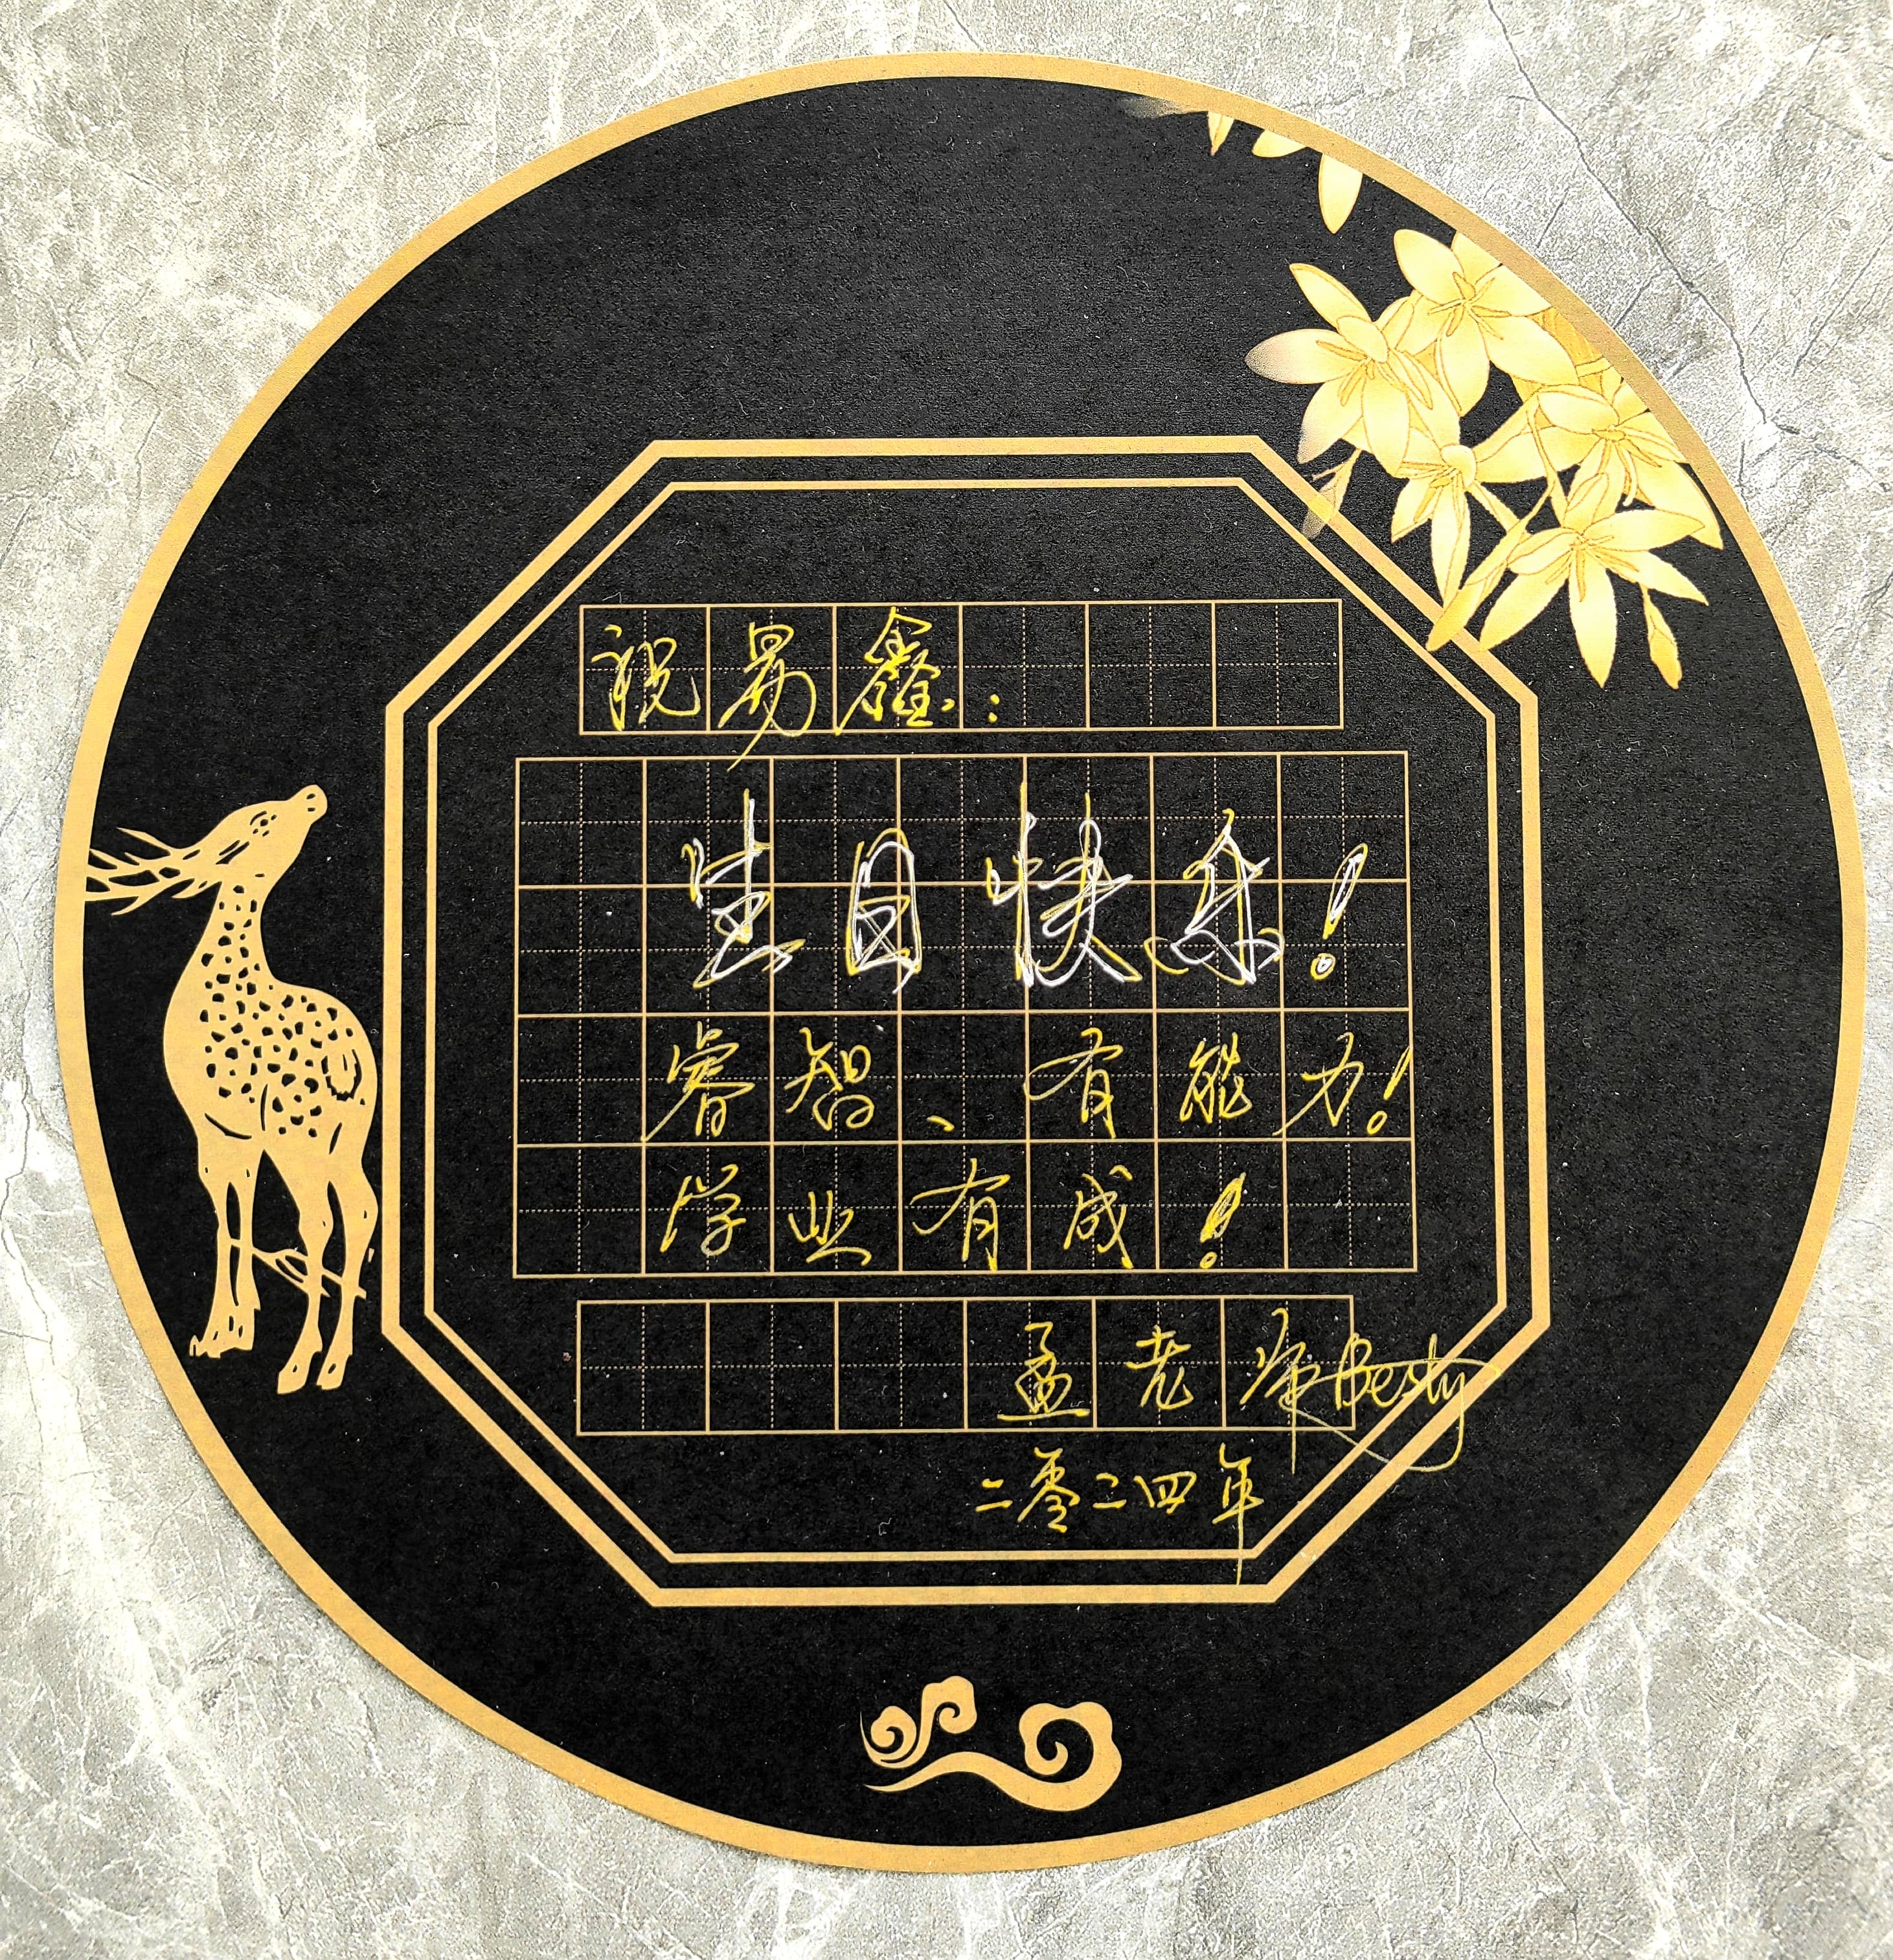 祝易鑫：
生日快乐！
睿智、有能力！
学业有成！
孟老师Besty
二零二四年